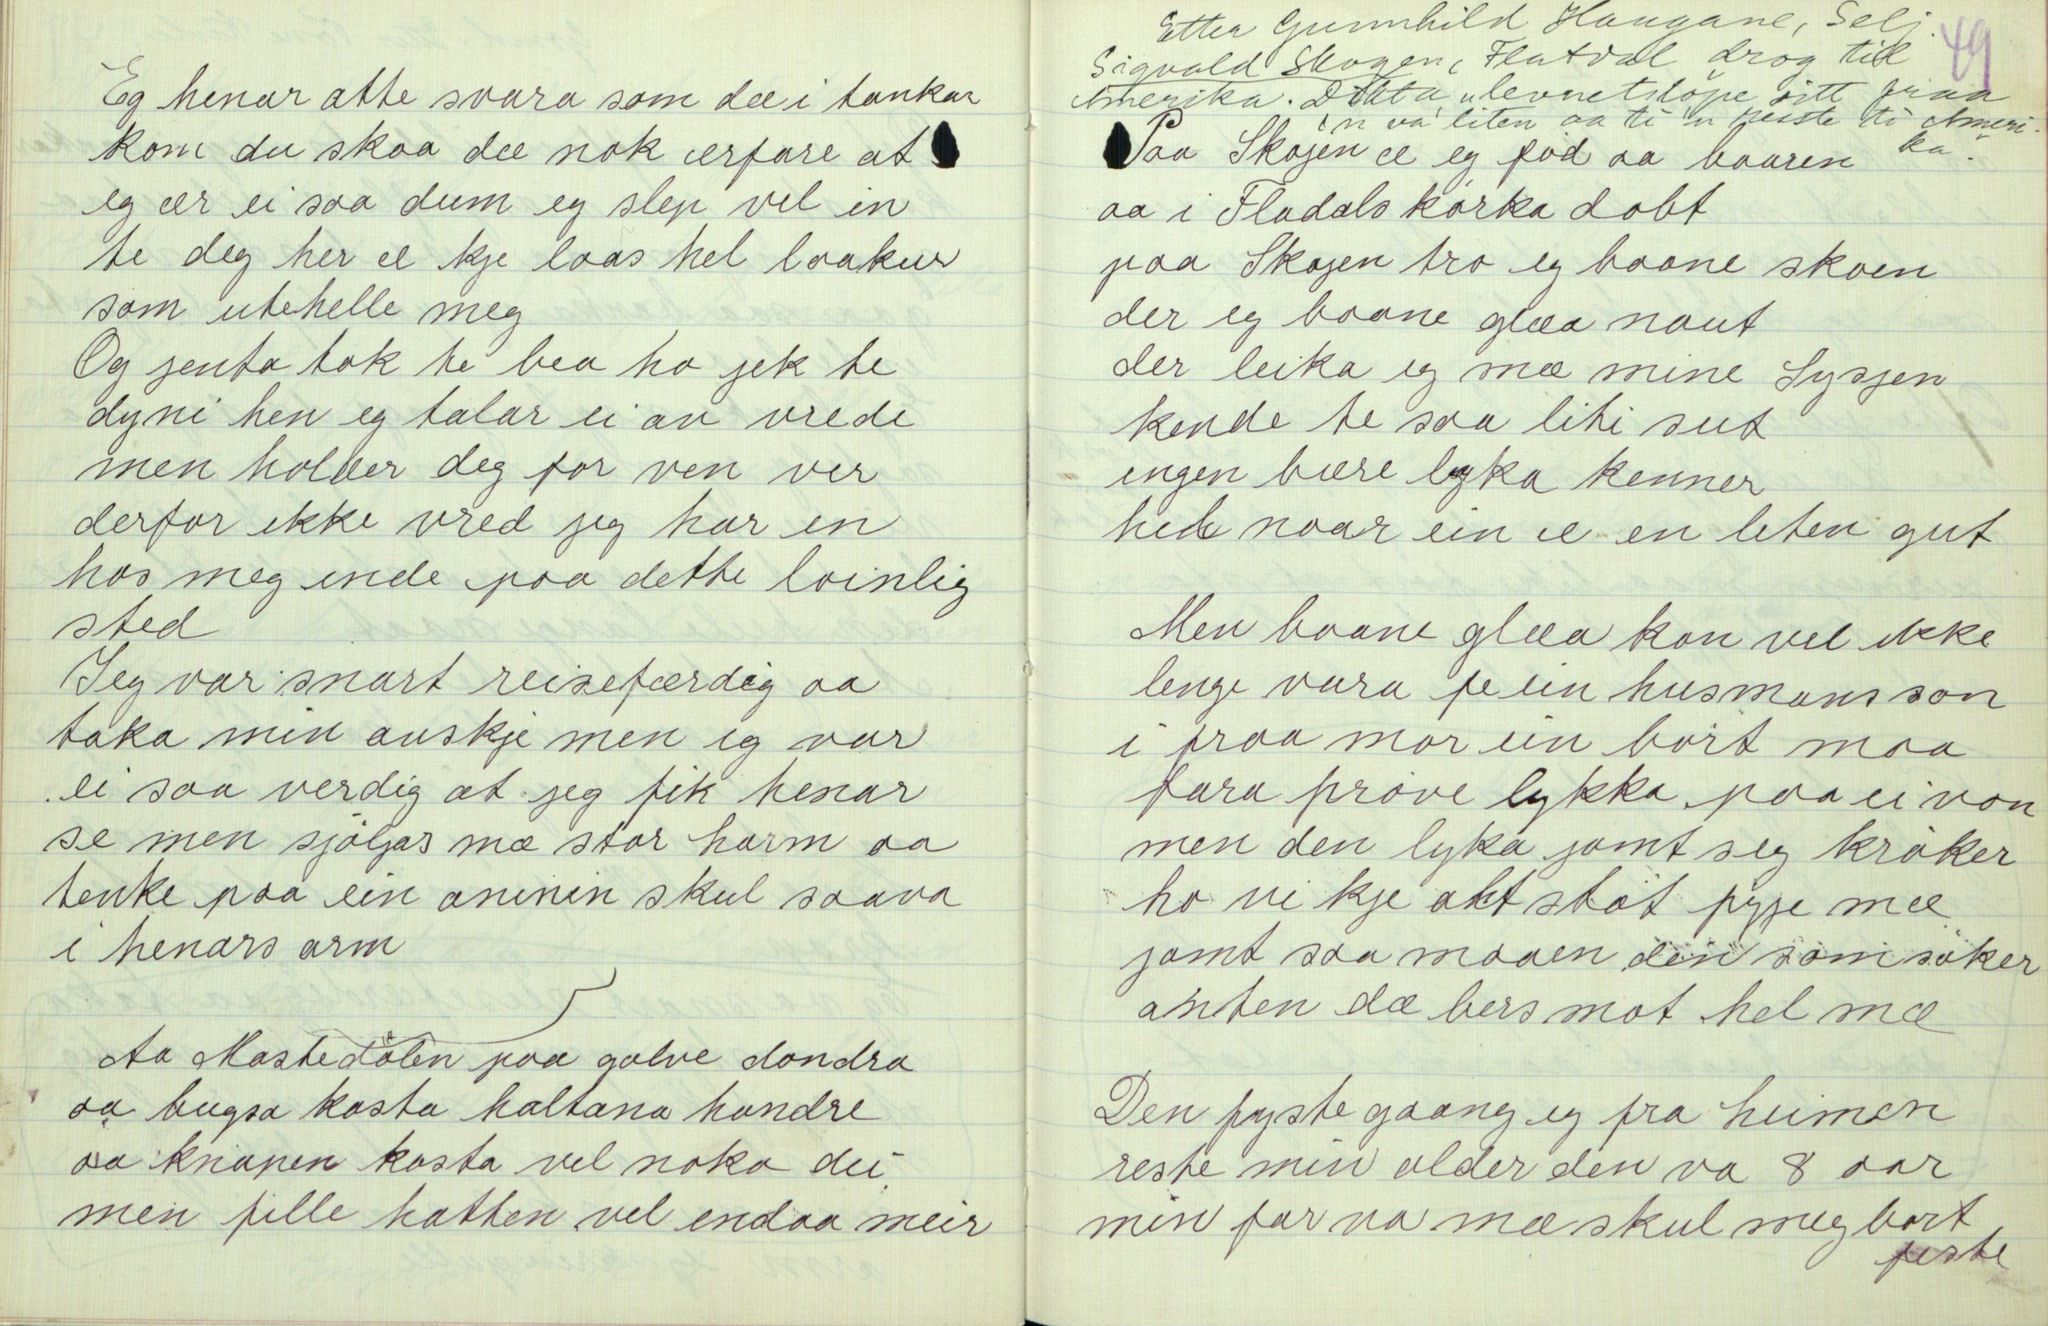 Eg henar atte svara som dæ i tankar
kom du skaa dæ nok ærfare at
eg ær ei saa dum eg slep vel in
te deg her æ kje laas hel laakur
som utehelle meg
Og jenta tok te bea ho jek te
dyni hen eg talar ei av vrede
men holder deg for ven ver
derfor ikke vred jeg har en
hos meg ende paa dette loinlig
sted
Jeg var snart reisefærdig aa
taka min auskje men eg var
ei saa verdig at jeg fik henar
se men sjölgas mæ stor harm aa
tenke paa ein aninin skul saava
i henars arm
Aa Mastedölen paa golve dondra
aa bugsa kosta haltana hondre
aa knapen kosta vel noko dei
men fille hatten vel endaa meir
Etter Gunnhild Haugane, Selj.
49
Sigvald Skogen, Flatdal drog til
Amerika. Dikta "levnetsløpe sitt fraa
'n va' liten aa ti 'n reiste ti Ameri-
ka."
Paa Skojen æ eg föd aa baaren
aa i Fladals körka döbt
paa Skojen tro eg baane skoen
der eg baane glæa nout
der leika eg mæ mine Sysjen
kende te saa liti sut
ingen bære lyka kenner
hel naar ein æ en leten gut
Men baane glæa kan vel ikke
lenge vara fe ein husmans son
i fraa mor ein bort maa
fara pröve lykka paa ei von
men den lyka jamt seg kröker
ho vi kje akt stöt fyje mæ
jamt saa maaen din som söker
anten dæ bers mot hel mæ
Den fyste gaang eg fra heimen
reste min alder den va 8 aar
min far va mæ skul meg bort
feste